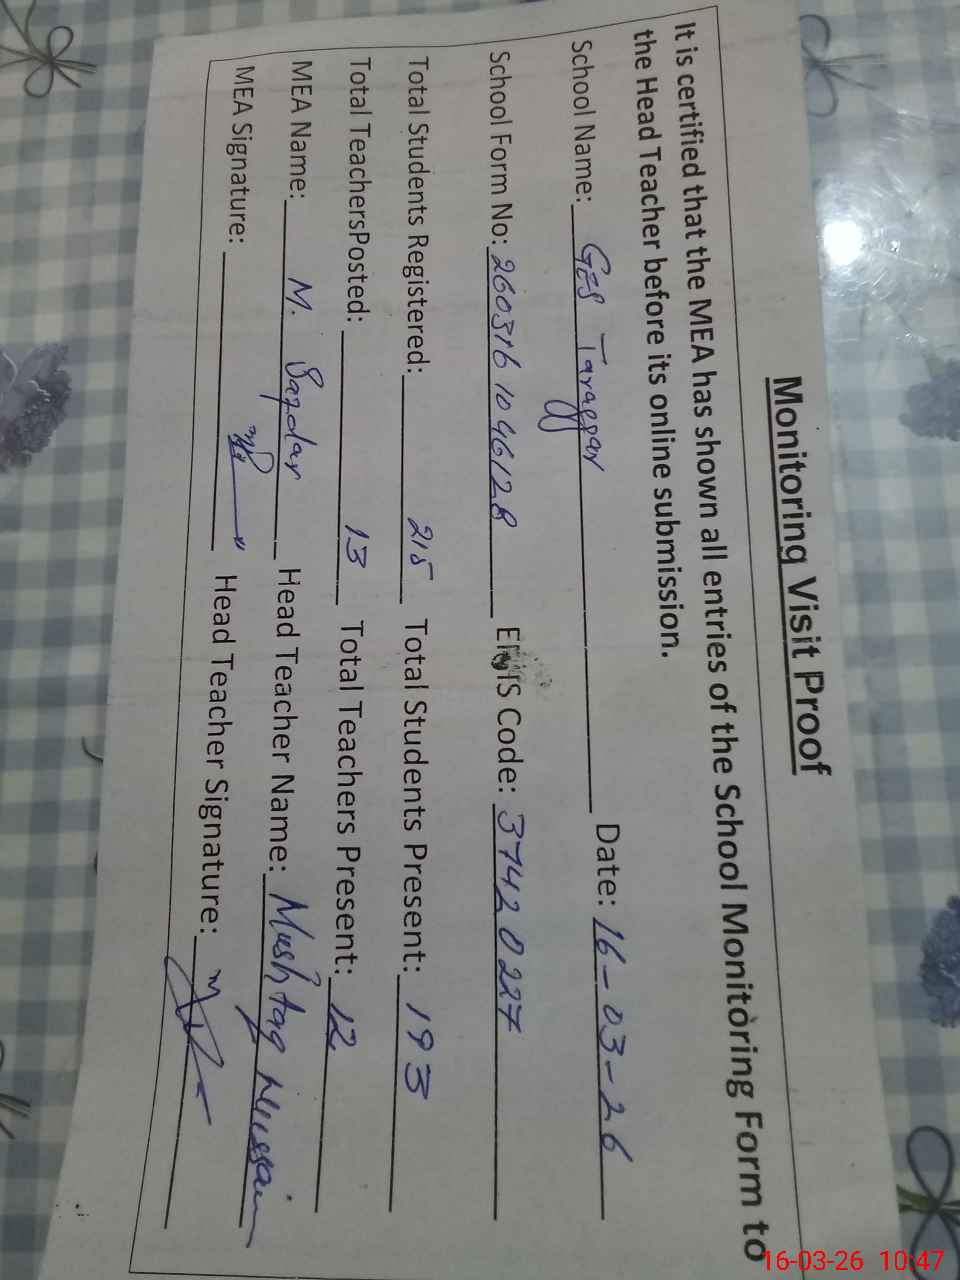 Monitoring Visit Proof
It is certified that the MEA has shown all entries of the School Monitoring Form to
the Head Teacher before its online submission.
School Name: GES Taraggar Date: 16-03-26
School Form No: 260316104612 EMIS Code: 37420227
Total Students Registered: 215 Total Students Present: 193
Total TeachersPosted: 13 Total Teachers Present: 12
MEA Name: M. Head Teacher Name: Mushtaq Hussain
MEA Signature: Head Teacher Signature:
16-03-26 10:47